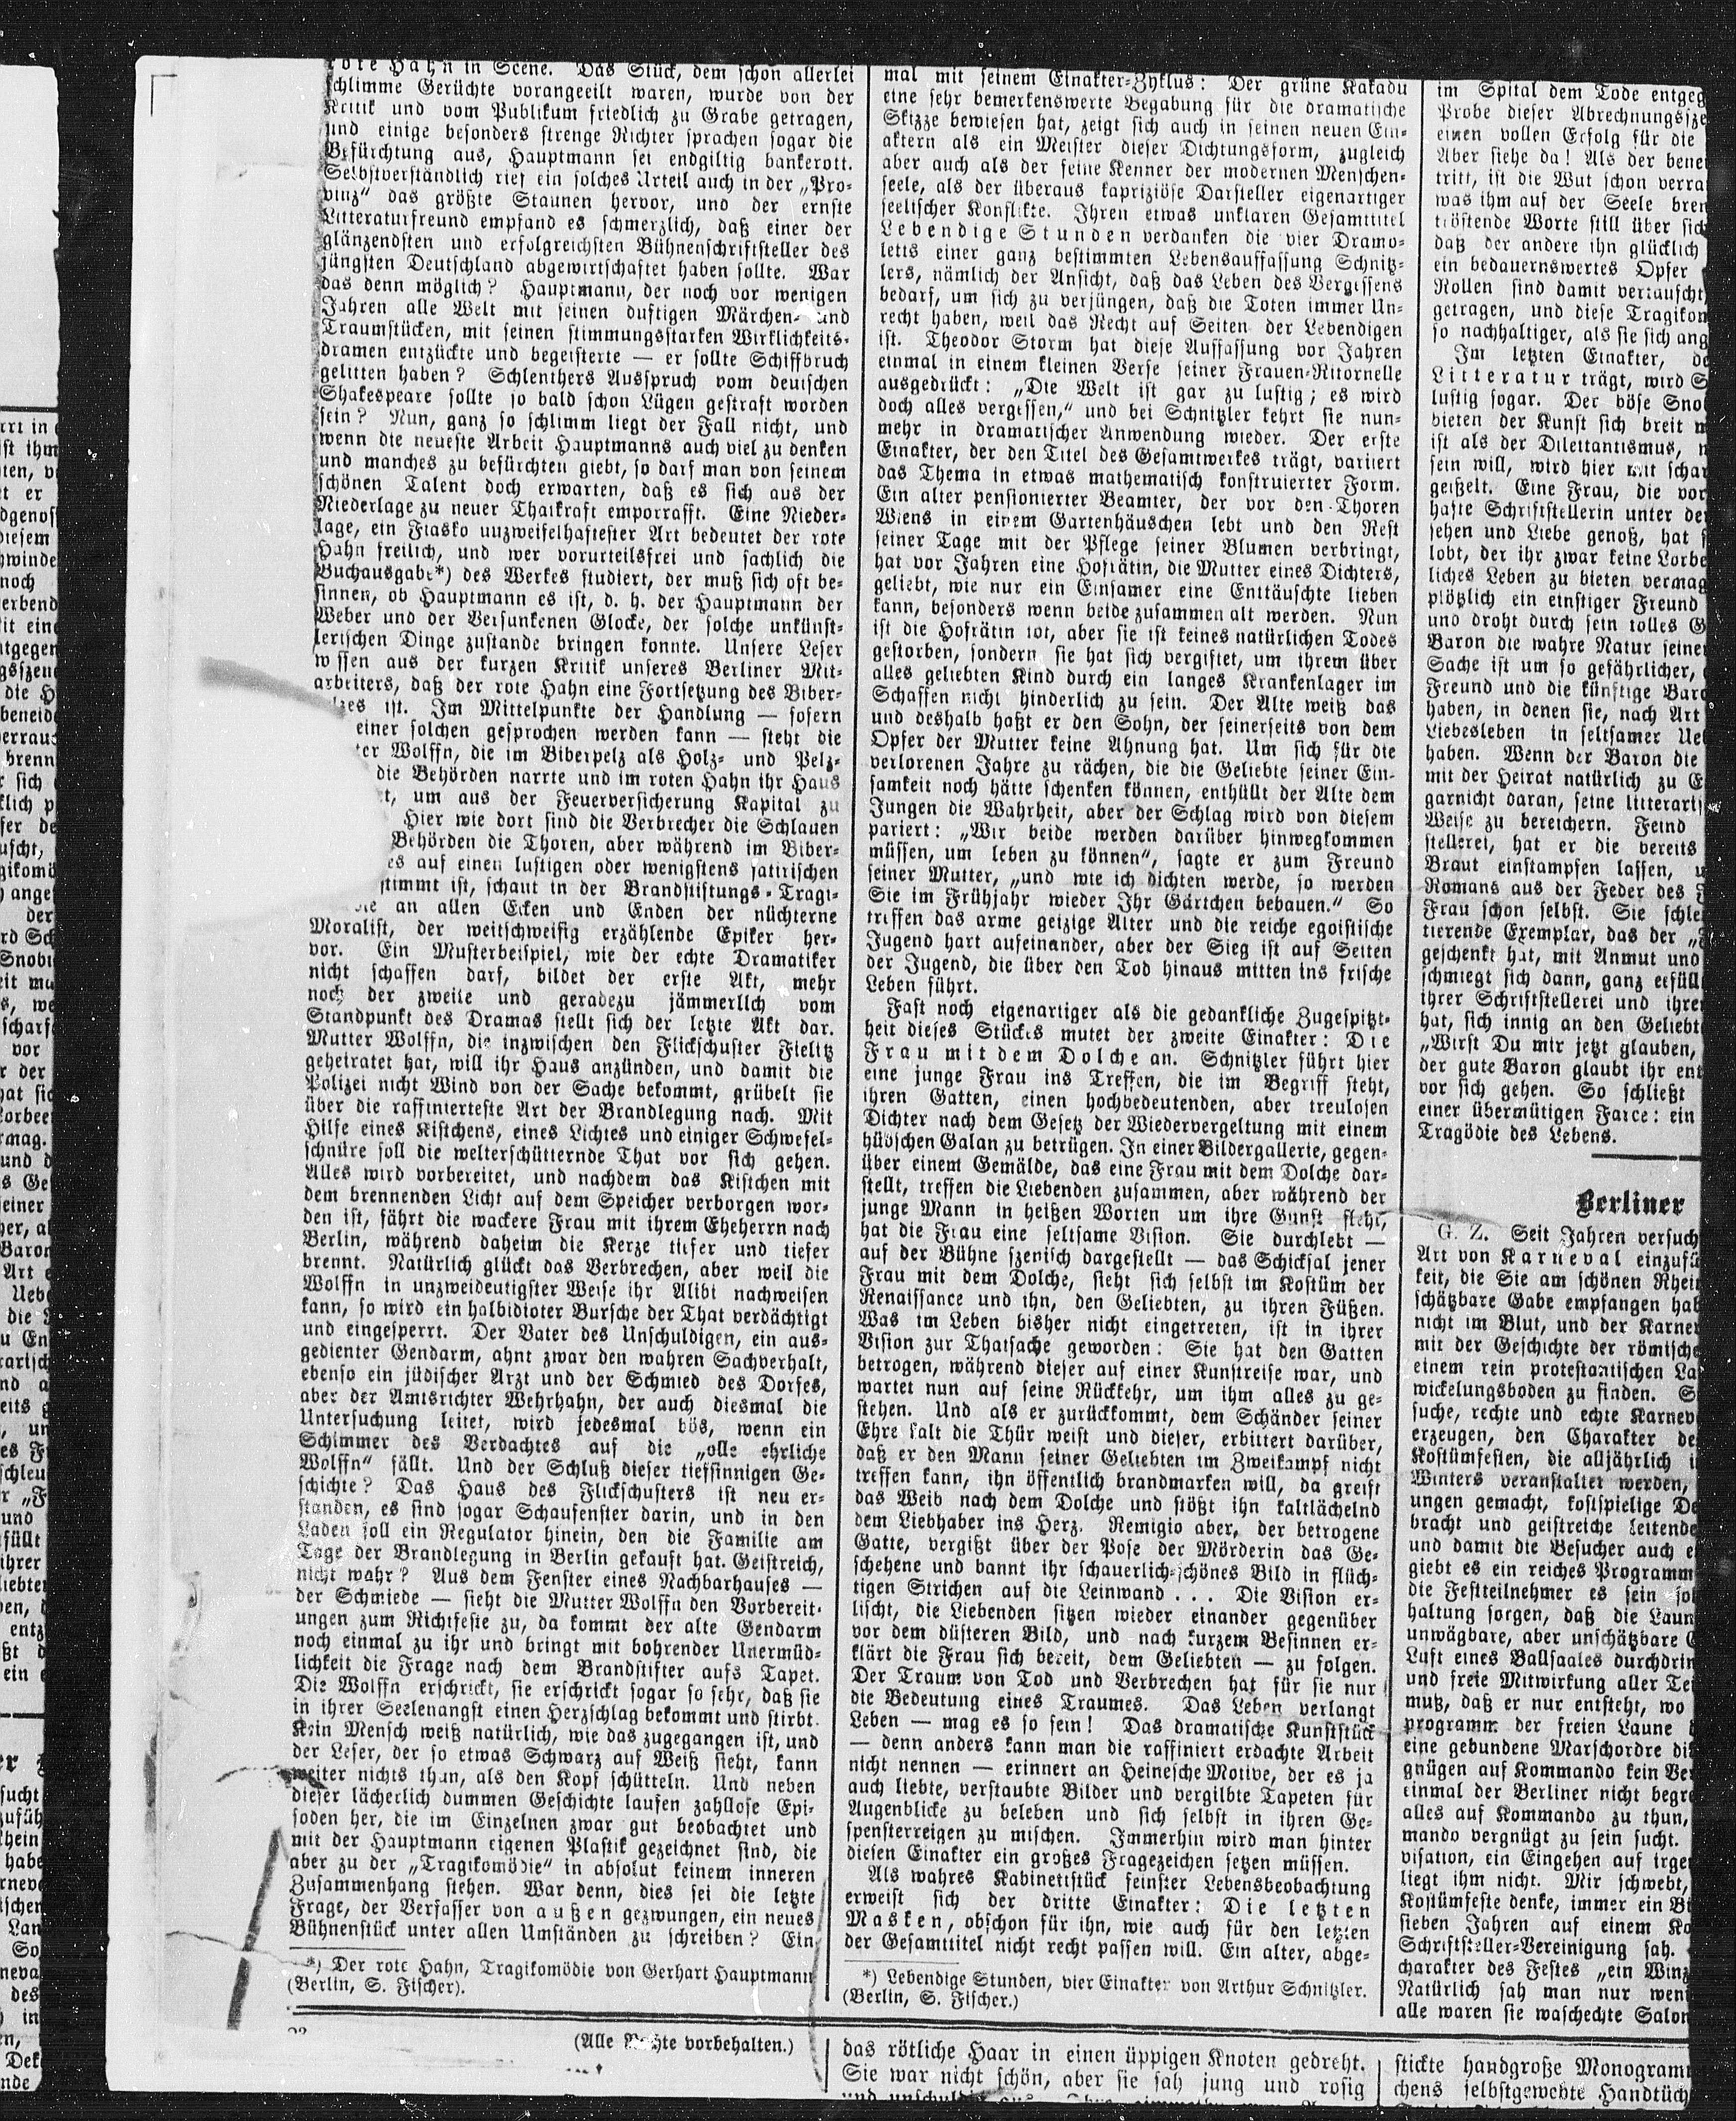 rote Hahn in Scene. Das Stück, dem schon allerlei
schlimme Gerüchte vorangeeilt waren, wurde von der
Kritik und vom Publikum friedlich zu Grabe getragen,
und einige besonders strenge Richter sprachen sogar die
Befürchtung aus, Hauptmann sei endgiltig bankerott.
Selbstverständlich rief ein solches Urteil auch in der „Pro-
vinz“ das größte Staunen hervor, und der ernste
Litteraturfreund empfand es schmerzlich, daß einer der
glänzendsten und erfolgreichsten Bühnenschriftsteller des
jüngsten Deutschland abgewirtschaftet haben sollte. War
das denn möglich? Hauptmann, der noch vor wenigen
Jahren alle Welt mit seinen duftigen Märchen- und
Traumstücken, mit seinen stimmungsstarken Wirklichkeits-
dramen entzückte und begeisterte — er sollte Schiffbruch
gelitten haben? Schlenthers Ausspruch vom deutschen
Shakespeare sollte so bald schon Lügen gestraft worden
sein? Nun, ganz so schlimm liegt der Fall nicht, und
wenn die neueste Arbeit Hauptmanns auch viel zu denken
und manches zu befürchten giebt, so darf man von seinem
schönen Talent doch erwarten, daß es sich aus der
Niederlage zu neuer Thatkraft emporrafft. Eine Nieder-
lage, ein Fiasko unzweifelhaftester Art bedeutet der rote
Hahn freilich, und wer vorurteilsfrei und sachlich die
Buchausgabe*) des Werkes studiert, der muß sich oft be-
sinnen, ob Hauptmann es ist, d. h. der Hauptmann der
Weber und der Versunkenen Glocke, der solche unkünst-
lerischen Dinge zustande bringen konnte. Unsere Leser
wissen aus der kurzen Kritik unseres Berliner Mit-
arbeiters, daß der rote Hahn eine Fortsetzung des Biber-
pelzes ist. Im Mittelpunkte der Handlung — sofern
einer solchen gesprochen werden kann — steht die
Wolffn, die im Biberpelz als Holz- und Pelz-
die Behörden narrte und im roten Hahn ihr Haus
um aus der Feuerversicherung Kapital zu
Hier wie dort sind die Verbrecher die Schlauen
Behörden die Thoren, aber während im Biber-
auf einen lustigen oder wenigstens satirischen
stimmt ist, schaut in der Brandstiftungs-Tragi-
an allen Ecken und Enden der nüchterne
Moralist, der weitschweifig erzählende Epiker her-
vor. Ein Musterbeispiel, wie der echte Dramatiker
nicht schaffen darf, bildet der erste Akt, mehr
noch der zweite und geradezu jämmerlich vom
Standpunkt des Dramas stellt sich der letzte Akt dar.
Mutter Wolffn, die inzwischen den Flickschuster Fielitz
geheiratet hat, will ihr Haus anzünden, und damit die
Polizei nicht Wind von der Sache bekommt, grübelt sie
über die raffinierteste Art der Brandlegung nach. Mit
Hilfe eines Kistchens, eines Lichtes und einiger Schwefel-
schnüre soll die welterschütternde That vor sich gehen.
Alles wird vorbereitet, und nachdem das Kistchen mit
dem brennenden Licht auf dem Speicher verborgen wor-
den ist, fährt die wackere Frau mit ihrem Eheherrn nach
Berlin, während daheim die Kerze tiefer und tiefer
brennt. Natürlich glückt das Verbrechen, aber weil die
Wolffn in unzweideutigster Weise ihr Alibi nachweisen
kann, so wird ein halbidioter Bursche der That verdächtigt
und eingesperrt. Der Vater des Unschuldigen, ein aus-
gedienter Gendarm, ahnt zwar den wahren Sachverhalt,
ebenso ein jüdischer Arzt und der Schmied des Dorfes,
aber der Amtsrichter Wehrhahn, der auch diesmal die
Untersuchung leitet, wird jedesmal bös, wenn ein
Schimmer des Verdachtes auf die „olle ehrliche
Wolffn“ fällt. Und der Schluß dieser tiefsinnigen Ge-
schichte? Das Haus des Flickschusters ist neu er-
standen, es sind sogar Schaufenster darin, und in den
Laden soll ein Regulator hinein, den die Familie am
Tage der Brandlegung in Berlin gekauft hat. Geistreich,
nicht wahr? Aus dem Fenster eines Nachbarhauses —
der Schmiede — sieht die Mutter Wolffn den Vorbereit-
ungen zum Richtfeste zu, da kommt der alte Gendarm
noch einmal zu ihr und bringt mit bohrender Unermüd-
lichkeit die Frage nach dem Brandstifter aufs Tapet.
Die Wolffn erschrickt, sie erschrickt sogar so sehr, daß sie
in ihrer Seelenangst einen Herzschlag bekommt und stirbt.
Kein Mensch weiß natürlich, wie das zugegangen ist, und
der Leser, der so etwas Schwarz auf Weiß sieht, kann
weiter nichts thun, als den Kopf schütteln. Und neben
dieser lächerlich dummen Geschichte laufen zahllose Epi-
soden her, die im Einzelnen zwar gut beobachtet und
mit der Hauptmann eigenen Plastik gezeichnet sind, die
aber zu der „Tragikomödie“ in absolut keinem inneren
Zusammenhang stehen. War denn, dies sei die letzte
Frage, der Verfasser von außen gezwungen, ein neues
Bühnenstück unter allen Umständen zu schreiben? Ein
*) Der rote Hahn, Tragikomödie von Gerhart Hauptmann
(Berlin, S. Fischer).
mal mit seinem Einakter-Zyklus: Der grüne Kakadu
eine sehr bemerkenswerte Begabung für die dramatische
Skizze bewiesen hat, zeigt sich auch in seinen neuen Ein-
aktern als ein Meister dieser Dichtungsform, zugleich
aber auch als der feine Kenner der modernen Menschen-
seele, als der überaus kapriziöse Darsteller eigenartiger
seelischer Konflikte. Ihren etwas unklaren Gesamttitel
Lebendige Stunden verdanken die vier Dramo-
letts einer ganz bestimmten Lebensauffassung Schnitz-
lers, nämlich der Ansicht, daß das Leben des Vergessens
bedarf, um sich zu verjüngen, daß die Toten immer Un-
recht haben, weil das Recht auf Seiten der Lebendigen
ist. Theodor Storm hat diese Auffassung vor Jahren
einmal in einem kleinen Verse seiner Frauen-Ritornelle
ausgedrückt: „Die Welt ist gar zu lustig; es wird
doch alles vergessen,“ und bei Schnitzler kehrt sie nun-
mehr in dramatischer Anwendung wieder. Der erste
Einakter, der den Titel des Gesamtwerkes trägt, variiert
das Thema in etwas mathematisch konstruierter Form.
Ein alter pensionierter Beamter, der vor den Thoren
Wiens in einem Gartenhäuschen lebt und den Rest
seiner Tage mit der Pflege seiner Blumen verbringt,
hat vor Jahren eine Hofrätin, die Mutter eines Dichters,
geliebt, wie nur ein Einsamer eine Enttäuschte lieben
kann, besonders wenn beide zusammen alt werden. Nun
ist die Hofrätin tot, aber sie ist keines natürlichen Todes
gestorben, sondern sie hat sich vergiftet, um ihrem über
alles geliebten Kind durch ein langes Krankenlager im
Schaffen nicht hinderlich zu sein. Der Alte weiß das
und deshalb haßt er den Sohn, der seinerseits von dem
Opfer der Mutter keine Ahnung hat. Um sich für die
verlorenen Jahre zu rächen, die die Geliebte seiner Ein-
samkeit noch hätte schenken können, enthüllt der Alte dem
Jungen die Wahrheit, aber der Schlag wird von diesem
pariert: „Wir beide werden darüber hinwegkommen
müssen, um leben zu können“, sagte er zum Freund
seiner Mutter, „und wie ich dichten werde, so werden
Sie im Frühjahr wieder Ihr Gärtchen bebauen.“ So
treffen das arme geizige Alter und die reiche egoistische
Jugend hart aufeinander, aber der Sieg ist auf Seiten
der Jugend, die über den Tod hinaus mitten ins frische
Leben führt.
Fast noch eigenartiger als die gedankliche Zugespitzt-
heit dieses Stückes mutet der zweite Einakter: Die
Frau mit dem Dolche an. Schnitzler führt hier
eine junge Frau ins Treffen, die im Begriff steht,
ihren Gatten, einen hochbedeutenden, aber treulosen
Dichter nach dem Gesetz der Wiedervergeltung mit einem
hübschen Galan zu betrügen. In einer Bildergallerie, gegen-
über einem Gemälde, das eine Frau mit dem Dolche dar-
stellt, treffen die Liebenden zusammen, aber während der
junge Mann in heißen Worten um ihre Gunst fleht,
hat die Frau eine seltsame Vision. Sie durchlebt —
auf der Bühne szenisch dargestellt — das Schicksal jener
Frau mit dem Dolche, sieht sich selbst im Kostüm der
Renaissance und ihn, den Geliebten, zu ihren Füßen.
Was im Leben bisher nicht eingetreten, ist in ihrer
Vision zur Thatsache geworden: Sie hat den Gatten
betrogen, während dieser auf einer Kunstreise war, und
wartet nun auf seine Rückkehr, um ihm alles zu ge-
stehen. Und als er zurückkommt, dem Schänder seiner
Ehre kalt die Thür weist und dieser, erbittert darüber,
daß er den Mann seiner Geliebten im Zweikampf nicht
treffen kann, ihn öffentlich brandmarken will, da greift
das Weib nach dem Dolche und stößt ihn kaltlächelnd
dem Liebhaber ins Herz. Remigio aber, der betrogene
Gatte, vergißt über der Pose der Mörderin das Ge-
schehene und bannt ihr schauerlich-schönes Bild in flüch-
tigen Strichen auf die Leinwand . . . Die Vision er-
lischt, die Liebenden sitzen wieder einander gegenüber
vor dem düsteren Bild, und nach kurzem Besinnen er-
klärt die Frau sich bereit, dem Geliebten — zu folgen.
Der Traum von Tod und Verbrechen hat für sie nur
die Bedeutung eines Traumes. Das Leben verlangt
Leben — mag es so sein! Das dramatische Kunststück
— denn anders kann man die raffiniert erdachte Arbeit
nicht nennen — erinnert an Heinesche Motive, der es ja
auch liebte, verstaubte Bilder und vergilbte Tapeten für
Augenblicke zu beleben und sich selbst in ihren Ge-
spensterreigen zu mischen. Immerhin wird man hinter
diesen Einakter ein großes Fragezeichen setzen müssen.
Als wahres Kabinettstück feinster Lebensbeobachtung
erweist sich der dritte Einakter: Die letzten
Masken, obschon für ihn, wie auch für den letzten
der Gesamttitel nicht recht passen will. Ein alter, abge-
*) Lebendige Stunden, vier Einakter von Arthur Schnitzler.
(Berlin, S. Fischer.)
im Spital dem Tode entgeg
Probe dieser Abrechnungssze
einen vollen Erfolg für die
Aber siehe da! Als der benei
tritt, ist die Wut schon verra
was ihm auf der Seele bren
tröstende Worte still über sich
daß der andere ihn glücklich
ein bedauernswertes Opfer
Rollen sind damit vertauscht,
getragen, und diese Tragikom
so nachhaltiger, als sie sich ang
Im letzten Einakter, de
Litteratur trägt, wird S
lustig sogar. Der böse Sno
bieten der Kunst sich breit m
ist als der Dilettantismus,
sein will, wird hier mit schar
geißelt. Eine Frau, die vor
hafte Schriftstellerin unter de
sehen und Liebe genoß, hat s
lobt, der ihr zwar keine Lorbe
liches Leben zu bieten vermag
plötzlich ein einstiger Freund
und droht durch sein tolles G
Baron die wahre Natur seine
Sache ist um so gefährlicher,
Freund und die künftige Baro
haben, in denen sie, nach Art
Liebesleben in seltsamer Ue
haben. Wenn der Baron die
mit der Heirat natürlich zu E
garnicht daran, seine litteraris
Weise zu bereichern. Feind
stellerei, hat er die bereits
Braut einstampfen lassen, u
Romans aus der Feder des F
Frau schon selbst. Sie schle
tierende Exemplar, das der „F
geschenkt hat, mit Anmut und
schmiegt sich dann, ganz erfüll
ihrer Schriftstellerei und ihre
hat, sich innig an den Geliebt
„Wirst Du mir jetzt glauben,
der gute Baron glaubt ihr ent
vor sich gehen. So schließt
einer übermütigen Farce: ein
Tragödie des Lebens.
Berliner
G. Z. Seit Jahren versuch
Art von Karneval einzufü
keit, die Sie am schönen Rhei
schätzbare Gabe empfangen hab
nicht im Blut, und der Karne
mit der Geschichte der römische
einem rein protestantischen La
wickelungsboden zu finden. S
suche, rechte und echte Karnev
erzeugen, den Charakter de
Kostümfesten, die alljährlich i
Winters veranstaltet werden,
ungen gemacht, kostspielige De
bracht und geistreiche leitende
und damit die Besucher auch e
giebt es ein reiches Programm
die Festteilnehmer es sein sol
haltung sorgen, daß die Laun
unwägbare, aber unschätzbare
Luft eines Ballsaales durchdrin
und freie Mitwirkung aller Tei
muß, daß er nur entsteht, wo
programm der freien Laune
eine gebundene Marschordre di
gnügen auf Kommando kein Ver
einmal der Berliner nicht begre
alles auf Kommando zu thun,
mando vergnügt zu sein sucht.
visation, ein Eingehen auf irge
liegt ihm nicht. Mir schwebt,
Kostümfeste denke, immer ein Bi
sieben Jahren auf einem Ko
Schriftsteller-Vereinigung sah.
charakter des Festes „ein Winz
Natürlich sah man nur wen
alle waren sie waschechte Salon
(Alle Rechte vorbehalten.)
das rötliche Haar in einen üppigen Knoten gedreht.
Sie war nicht schön, aber sie sah jung und rosig
stickte handgroße Monogram
chens selbstgewebte Handtüch